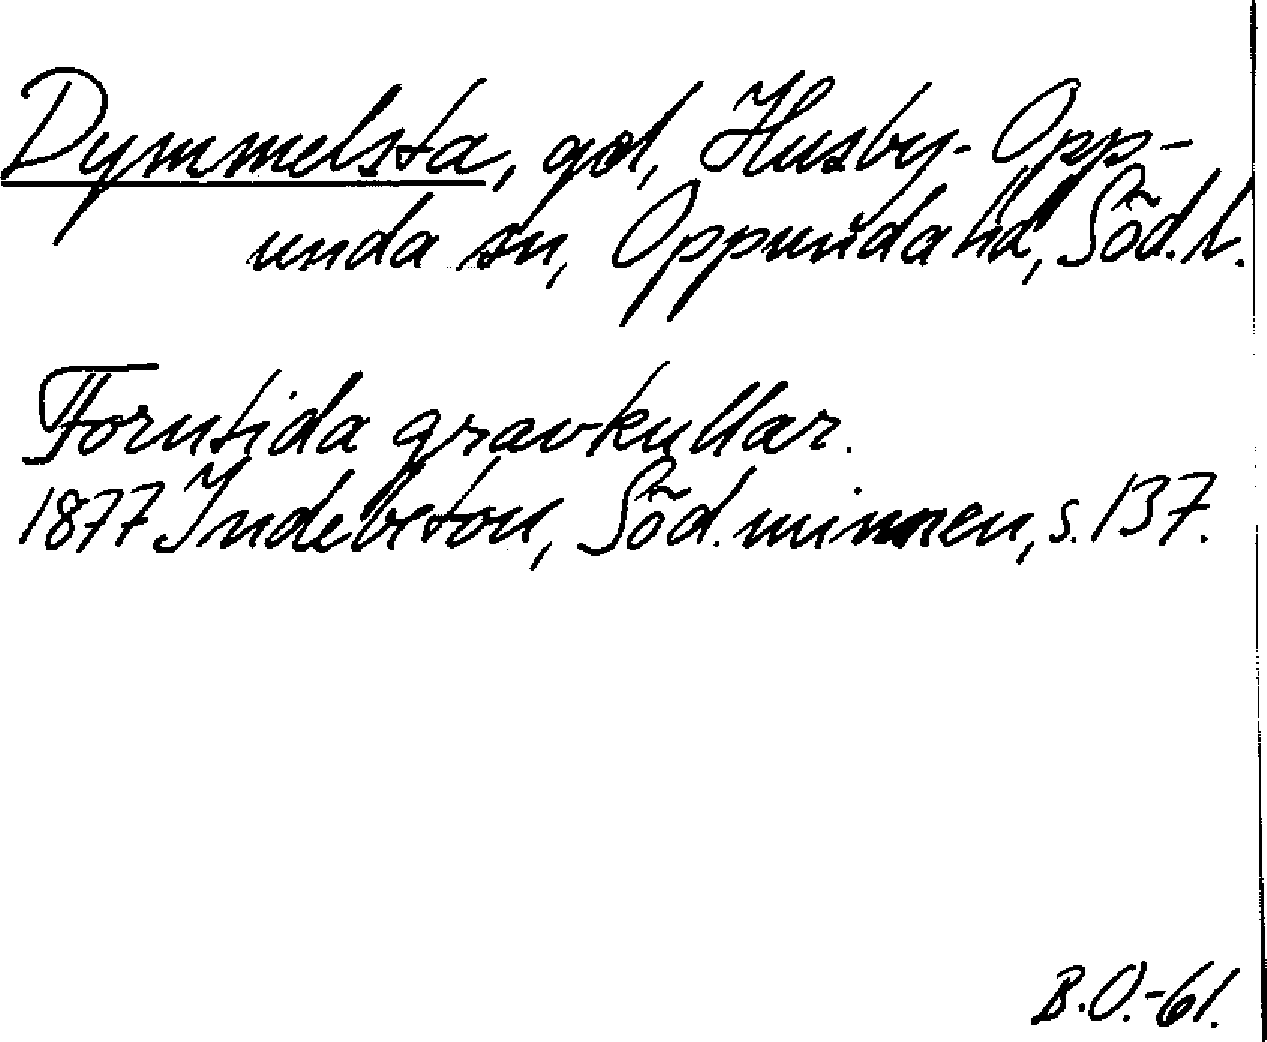 Dymmelsta, gd, Husby-Opp-
unda sn, Oppunda hd, Söd.l.
Forntida gravkullar.
1877 Indebetou, Söd. minnen, s. 137.
B.O.-61.